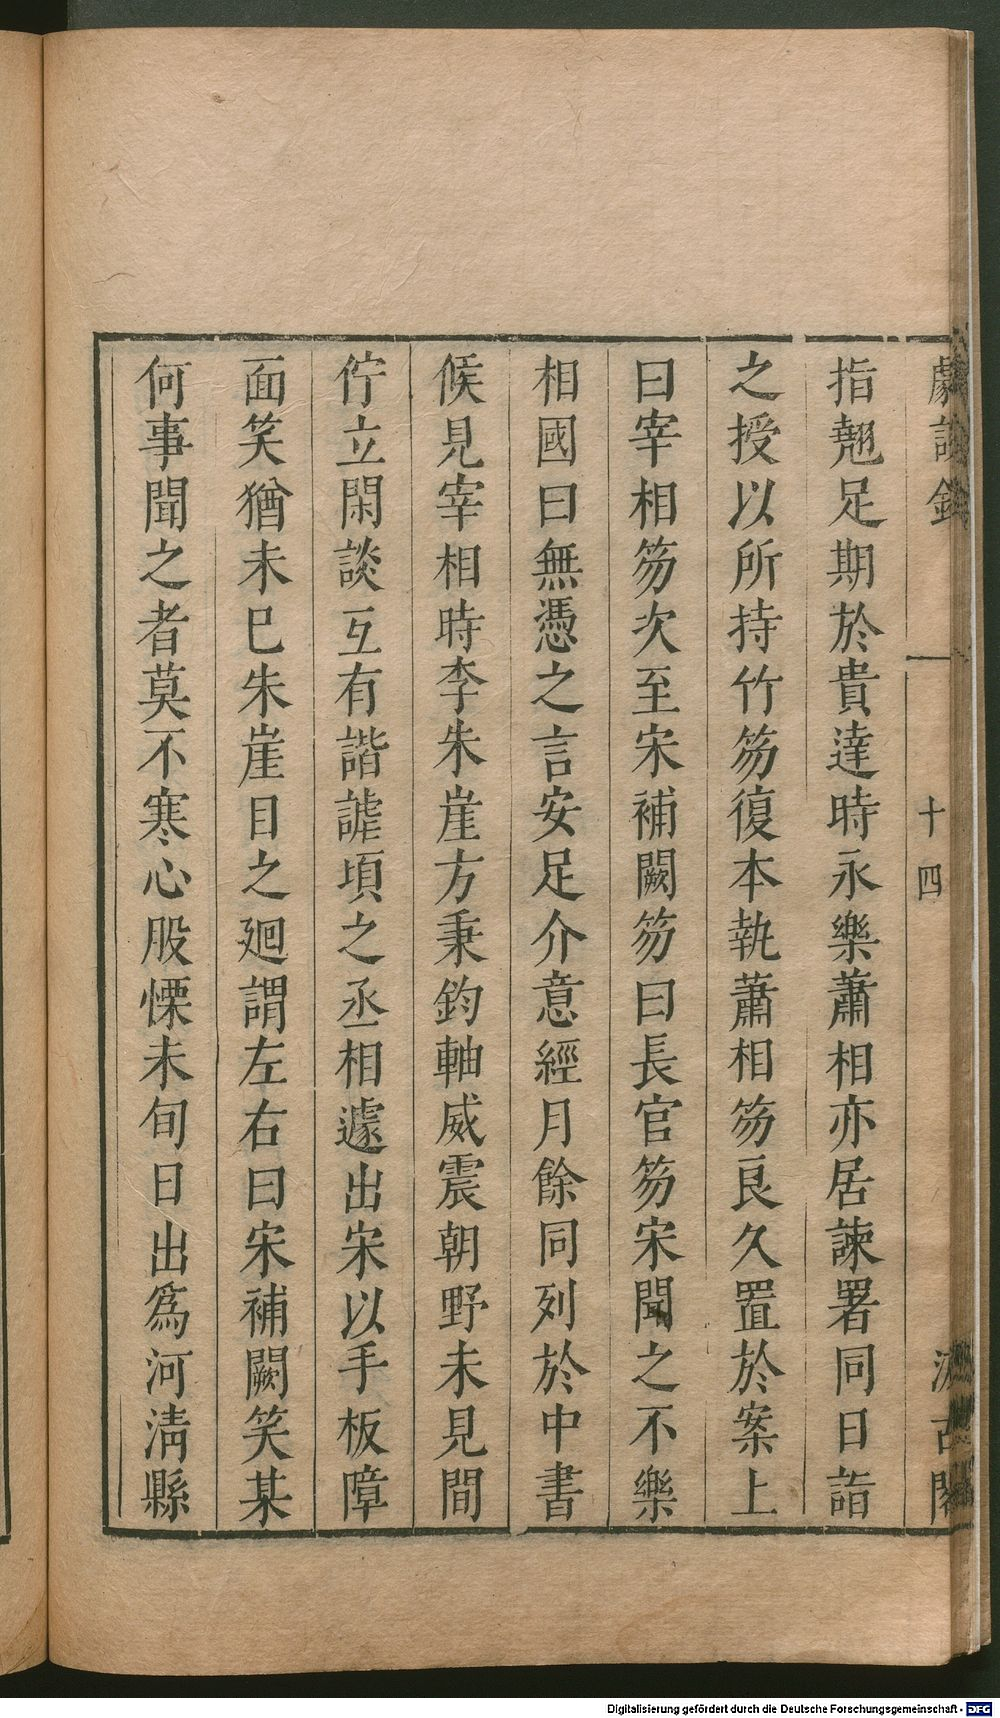 劇談錄 十四 汲古閣
指翹足期於貴達時永樂蕭相亦居諫署同日詣
之授以所持竹笏復本執蕭相笏良久置於案上
曰宰相笏次至宋補闕笏曰長官笏宋聞之不樂
相國曰無憑之言安足介意經月餘同列於中書
候見宰相時李朱崖方秉鈞軸威震朝野未見間
佇立閑談互有諧謔頃之丞相遽出宋以手板障
面笑猶未巳朱崖目之廻謂左右曰宋補闕笑某
何事聞之者莫不寒心股慄未旬日出爲河淸縣
Digitalisierung gefördert durch die Deutsche Forschungsgemeinschaft - DFG